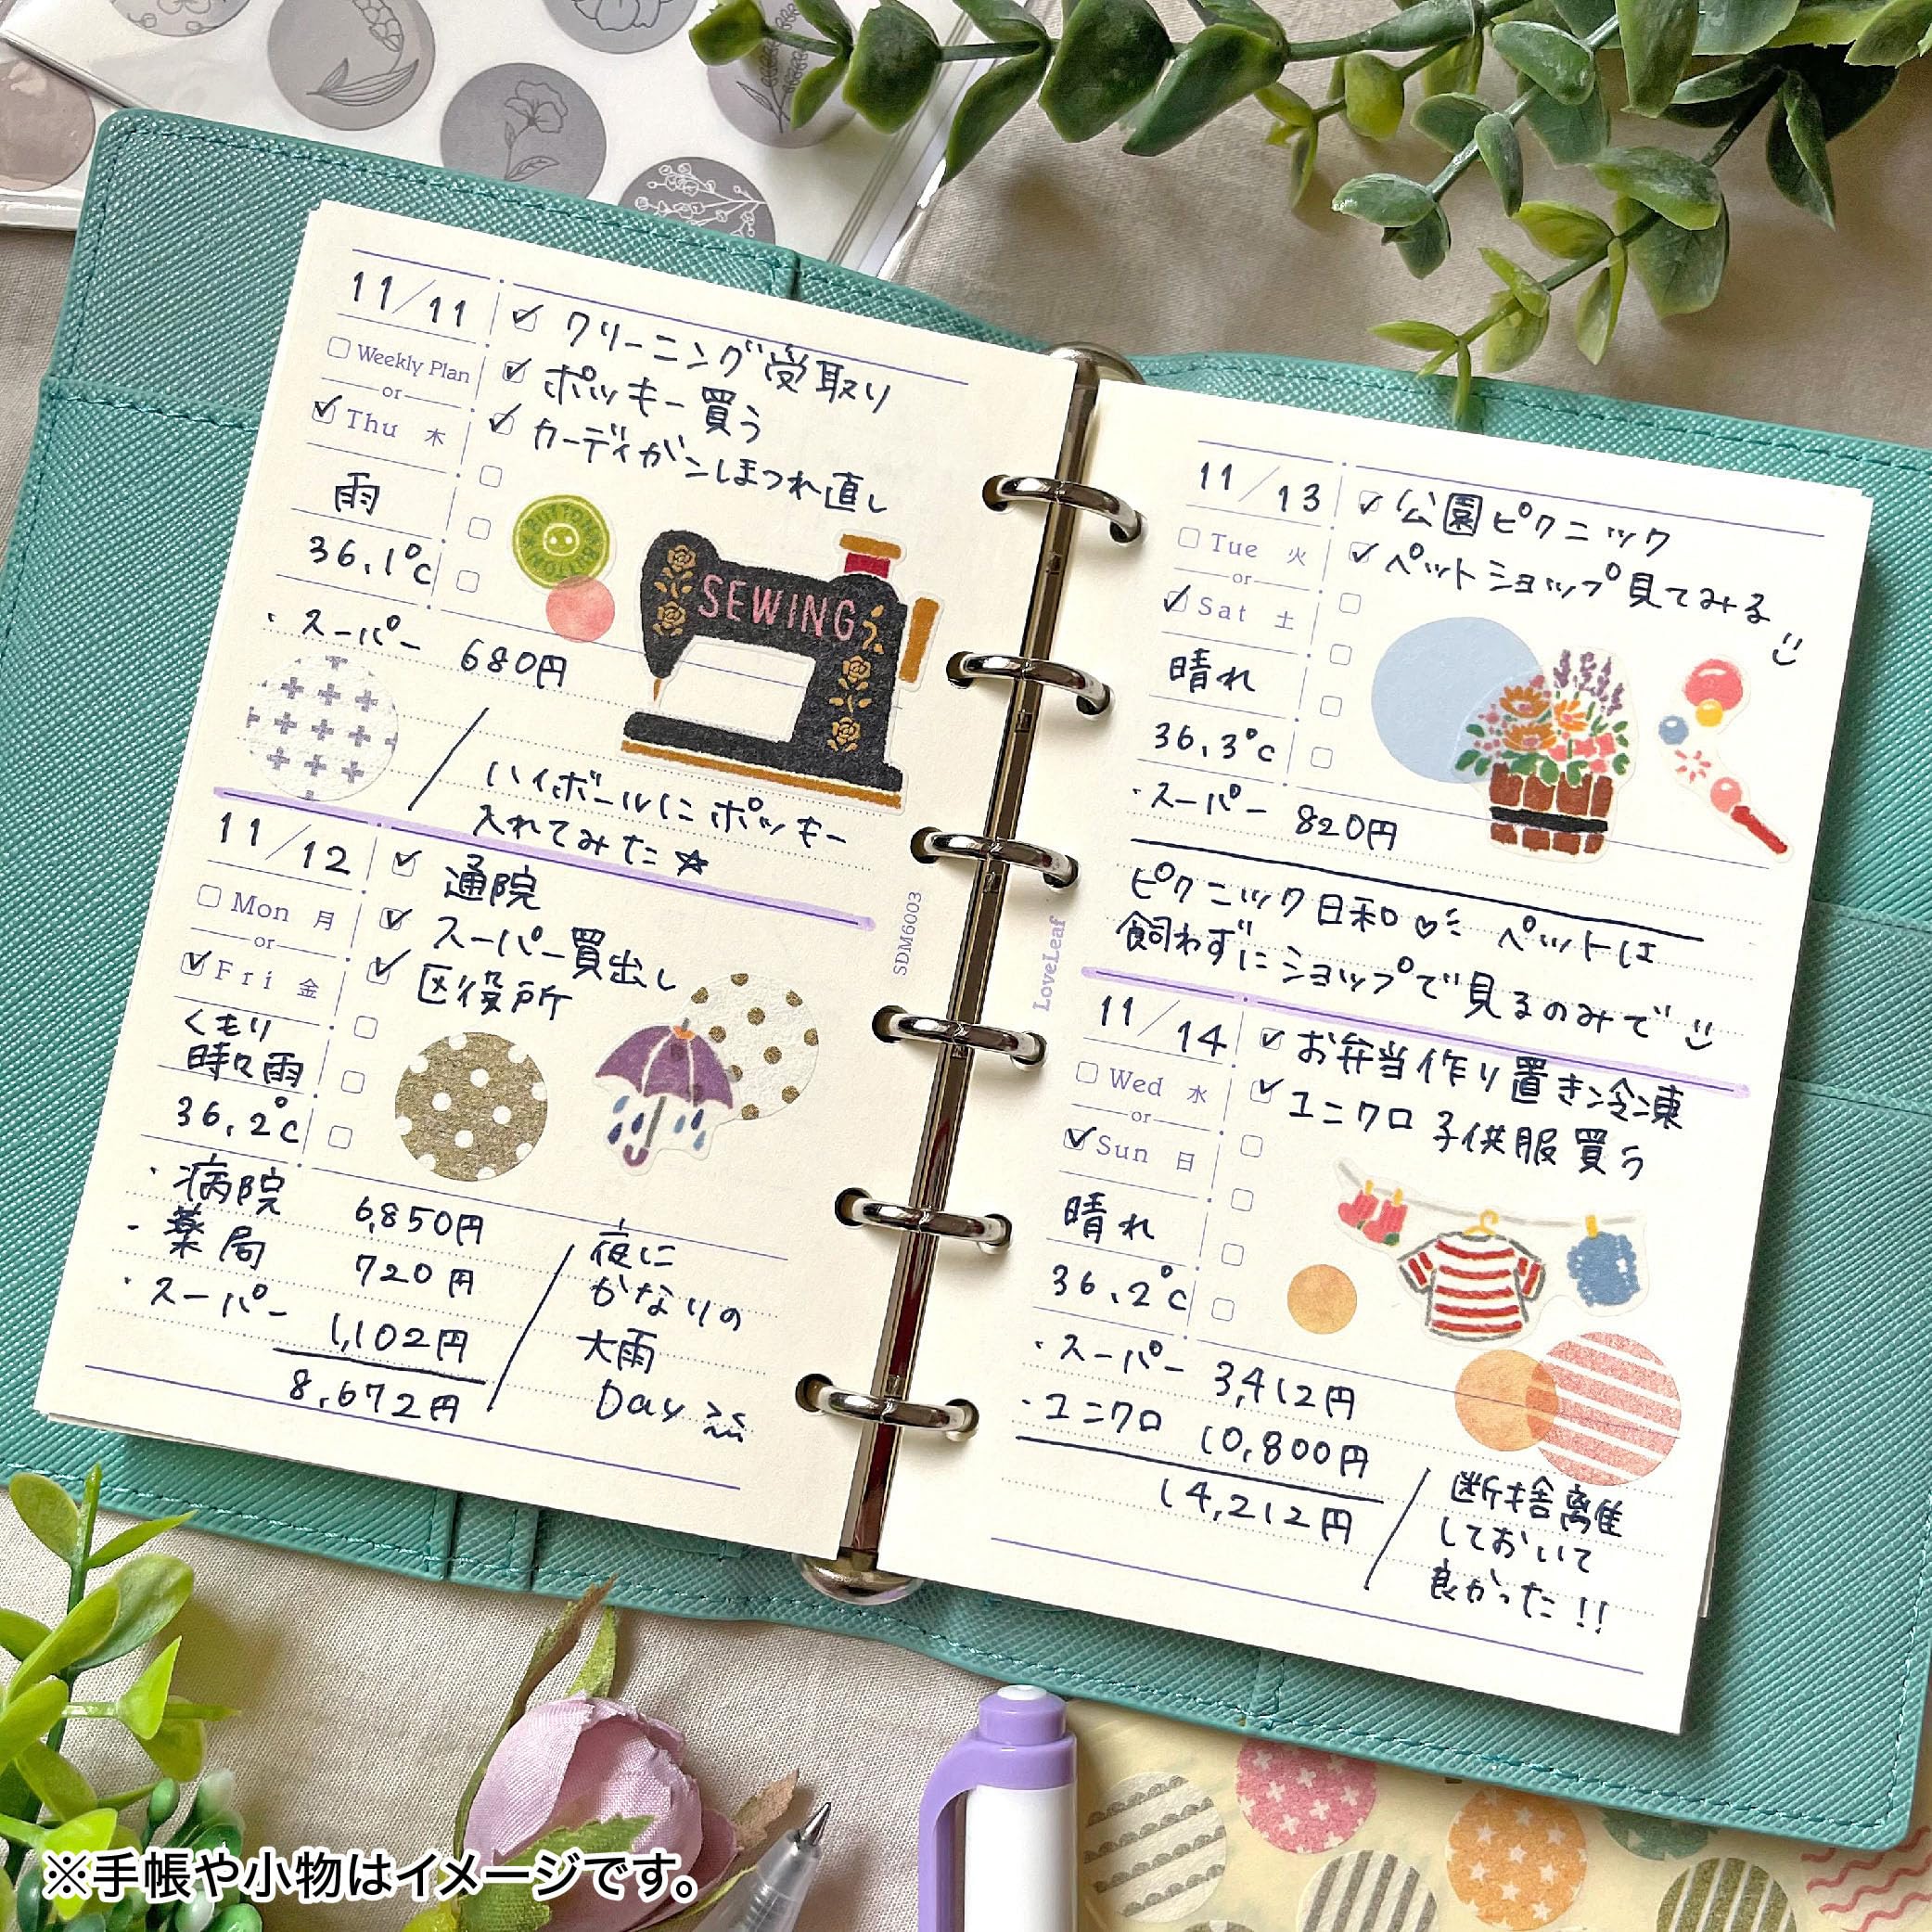 11/11
Weekly Plan
or
Thu 木
雨
36.1℃
クリーニング受取り
ポッキー買う
カーディガンほつれ直し
BUTTON BUTTON
SEWING
・スーパー 680円
ハイボールにポッキー
入れてみた☆
11/12
Mon 月
or
Fri 金
くもり
時々雨
36.2℃
通院
スーパー買出し
区役所
・病院 6,850円
・薬局 720円
・スーパー 1,102円
8,672円
夜に
かなりの
大雨
Day
SDM6003
LoveLeaf
11/13
Tue 火
or
Sat 土
晴れ
36.3℃
公園ピクニック
ペットショップ見てみる
・スーパー 820円
ピクニック日和♡ ペットは
飼わずにショップで見るのみで
11/14
Wed 水
or
Sun 日
晴れ
36.2℃
お弁当作り置き冷凍
ユニクロ子供服買う
・スーパー 3,412円
・ユニクロ 10,800円
14,212円
断捨離
しておいて
良かった!!
※手帳や小物はイメージです。